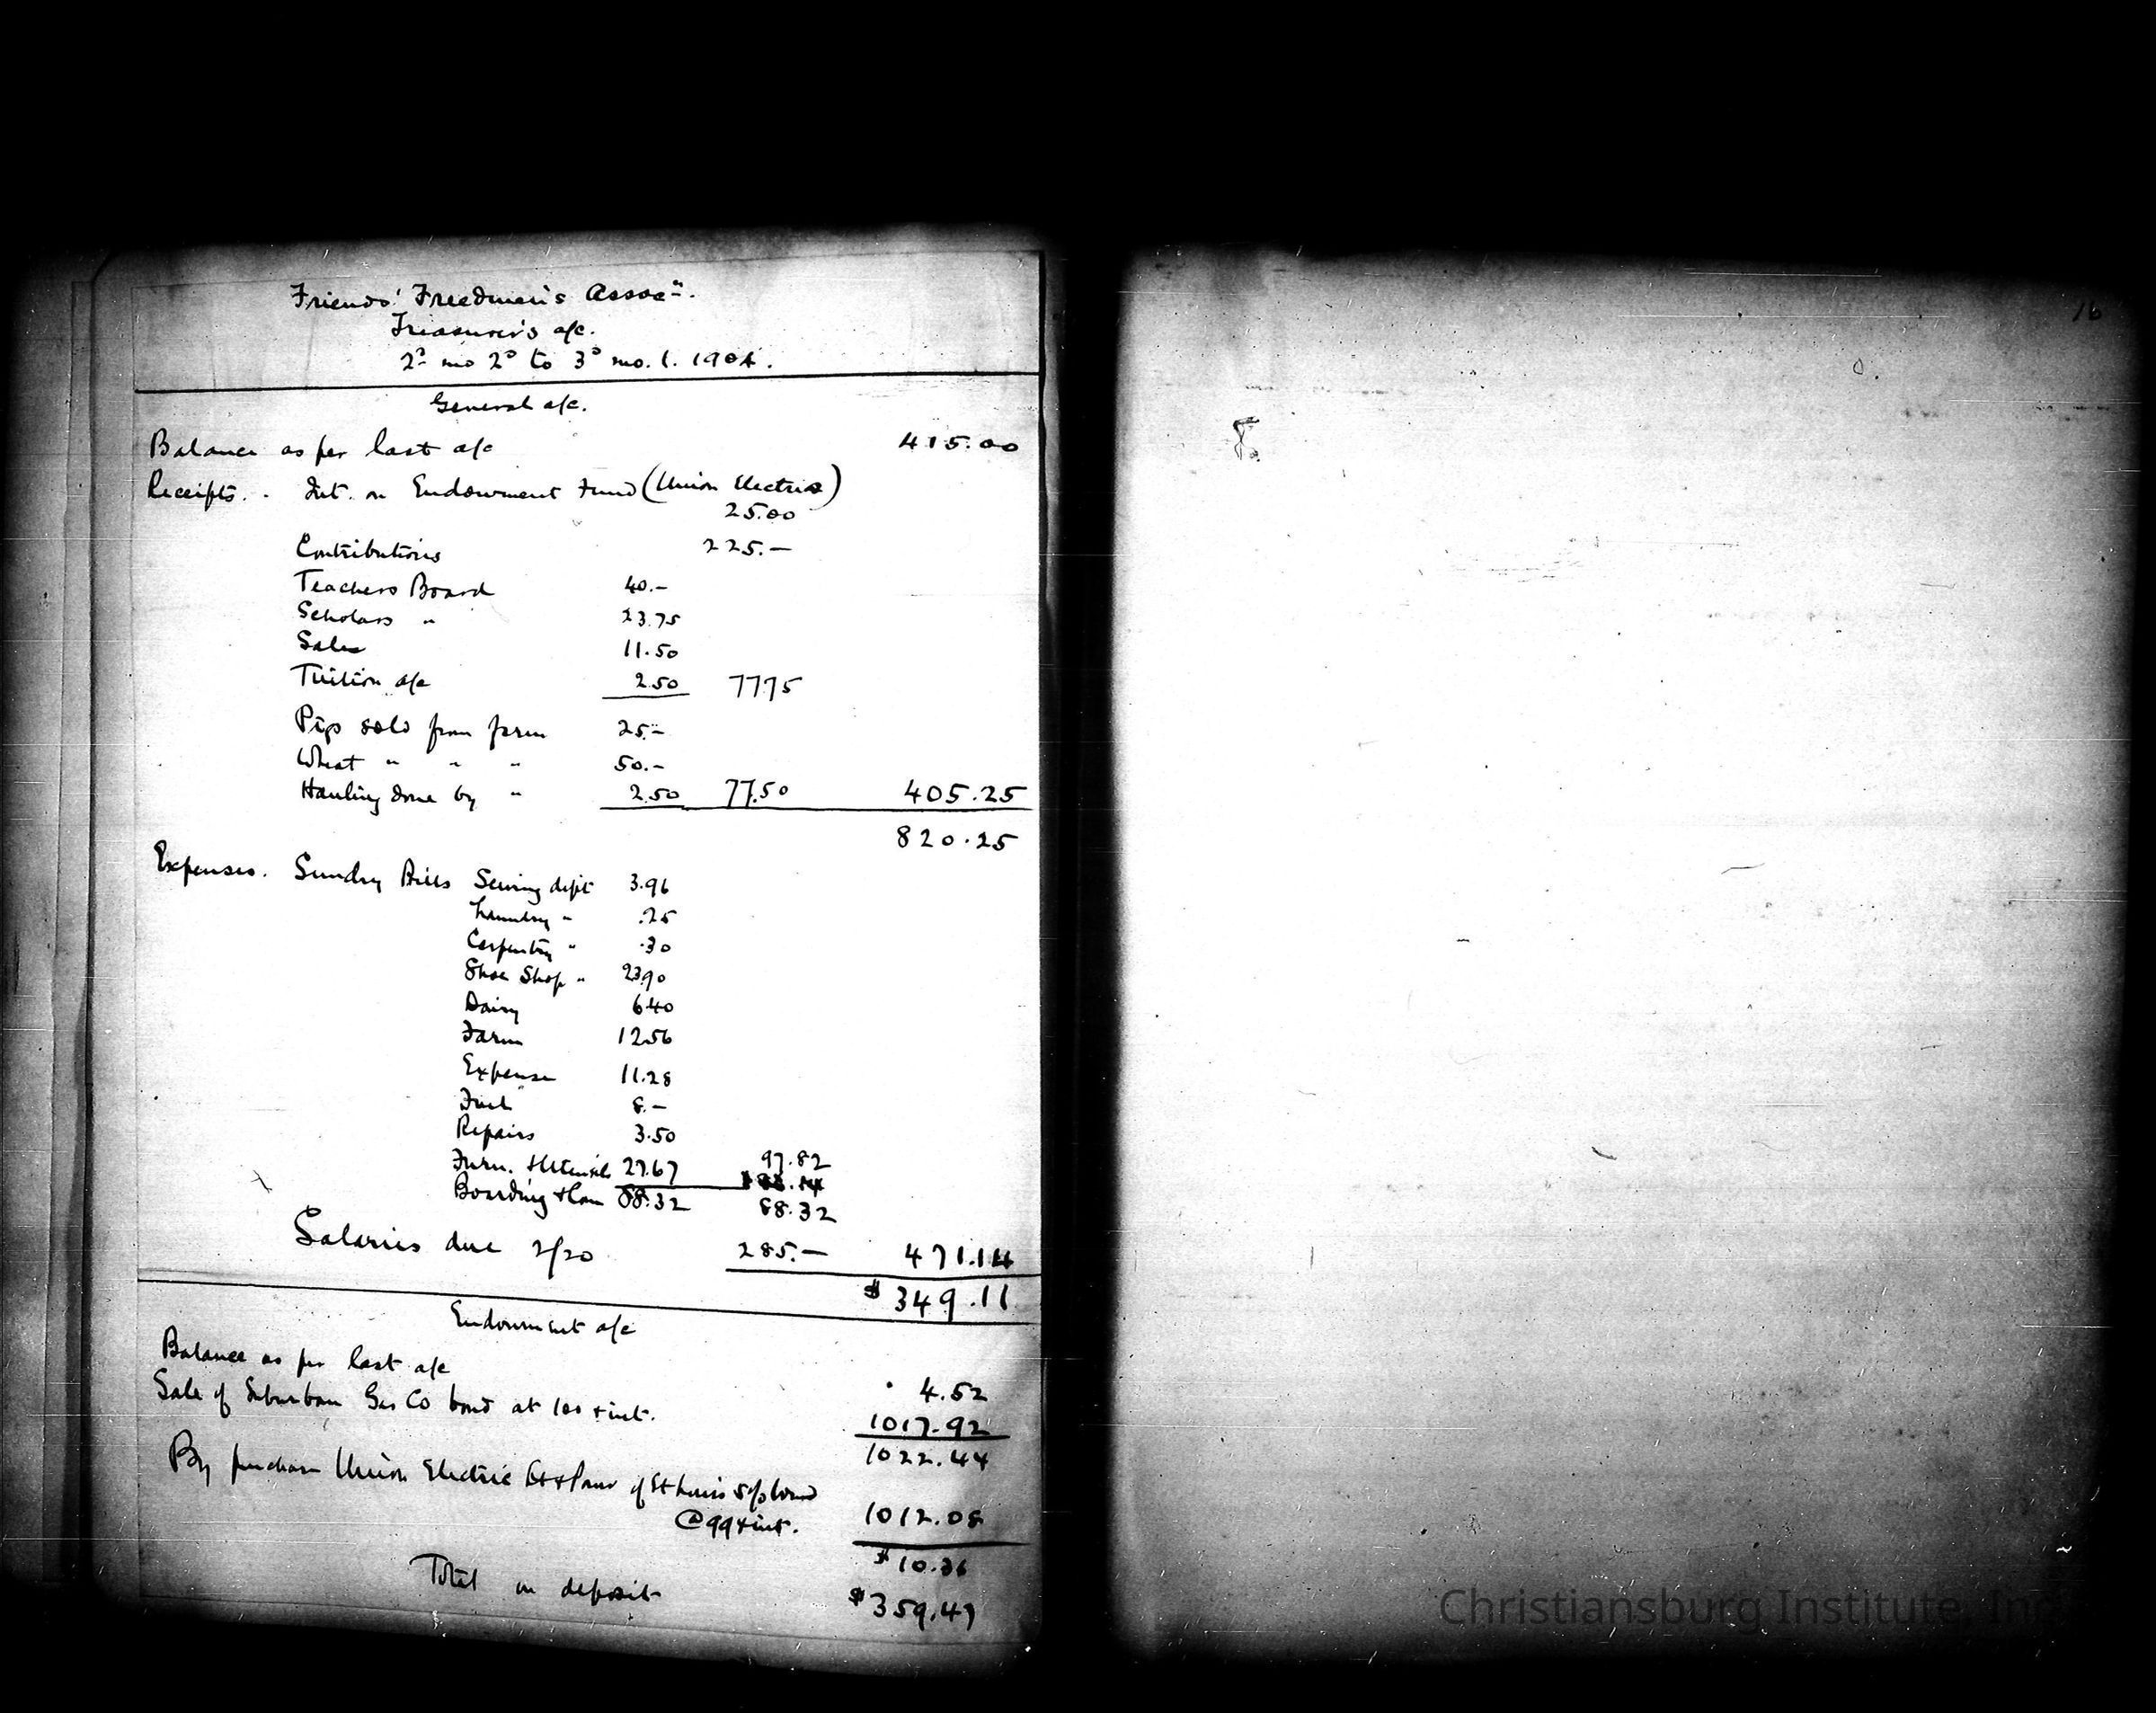 Friends' Freedmen's Assocn.
Treasurer's a/c.
2d mo 2d to 3d mo. 1. 1904.
General a/c.
Balance as per last a/c 415.00
Receipts. . Int. on Endowment Fund (Union Electric)
25.00
Contributions 225.—
Teachers Board 40.—
Scholars " 23.75
Sales 11.50
Tuition a/c 2.50 77.75
Pigs sold from farm 25.—
Wheat " " " 50.—
Hauling done by " 2.50 77.50 405.25
820.25
Expenses. Sundry Bills Sewing dept 3.96
Laundry " .25
Carpentry " .30
Shoe Shop " 23.90
Dairy 6.40
Farm 12.56
Expense 11.28
Fuel 8.—
Repairs 3.50
Furn. & Utensils 27.67 97.82
Boarding 88.32 88.32
Salaries due 2/20 285.— 471.14
$349.11
Endowment a/c
Balance as per last a/c 4.52
Sale of Suburban Gas Co bond at 100 & int. 1017.92
1022.44
By purchase Union Electric Lt & Power of St Louis 5% bond
@ 99 & int. 1012.08
$10.36
Total on deposit $359.47
16
Christiansburg Institute, Inc